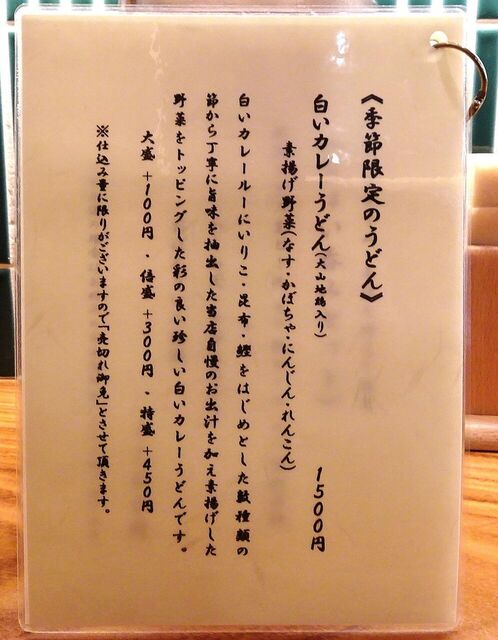 《季節限定のうどん》
白いカレーうどん(大山地鶏入り) 1500円
素揚げ野菜(なす・かぼちゃ・にんじん・れんこん)
白いカレールーにいりこ・昆布・鰹をはじめとした数種類の
節から丁寧に旨味を抽出した当店自慢のお出汁を加え素揚げした
野菜をトッピングした彩の良い珍しい白いカレーうどんです。
大盛+100円・倍盛+300円・特盛+450円
※仕込み量に限りがございますので「売切れ御免」とさせて頂きます。